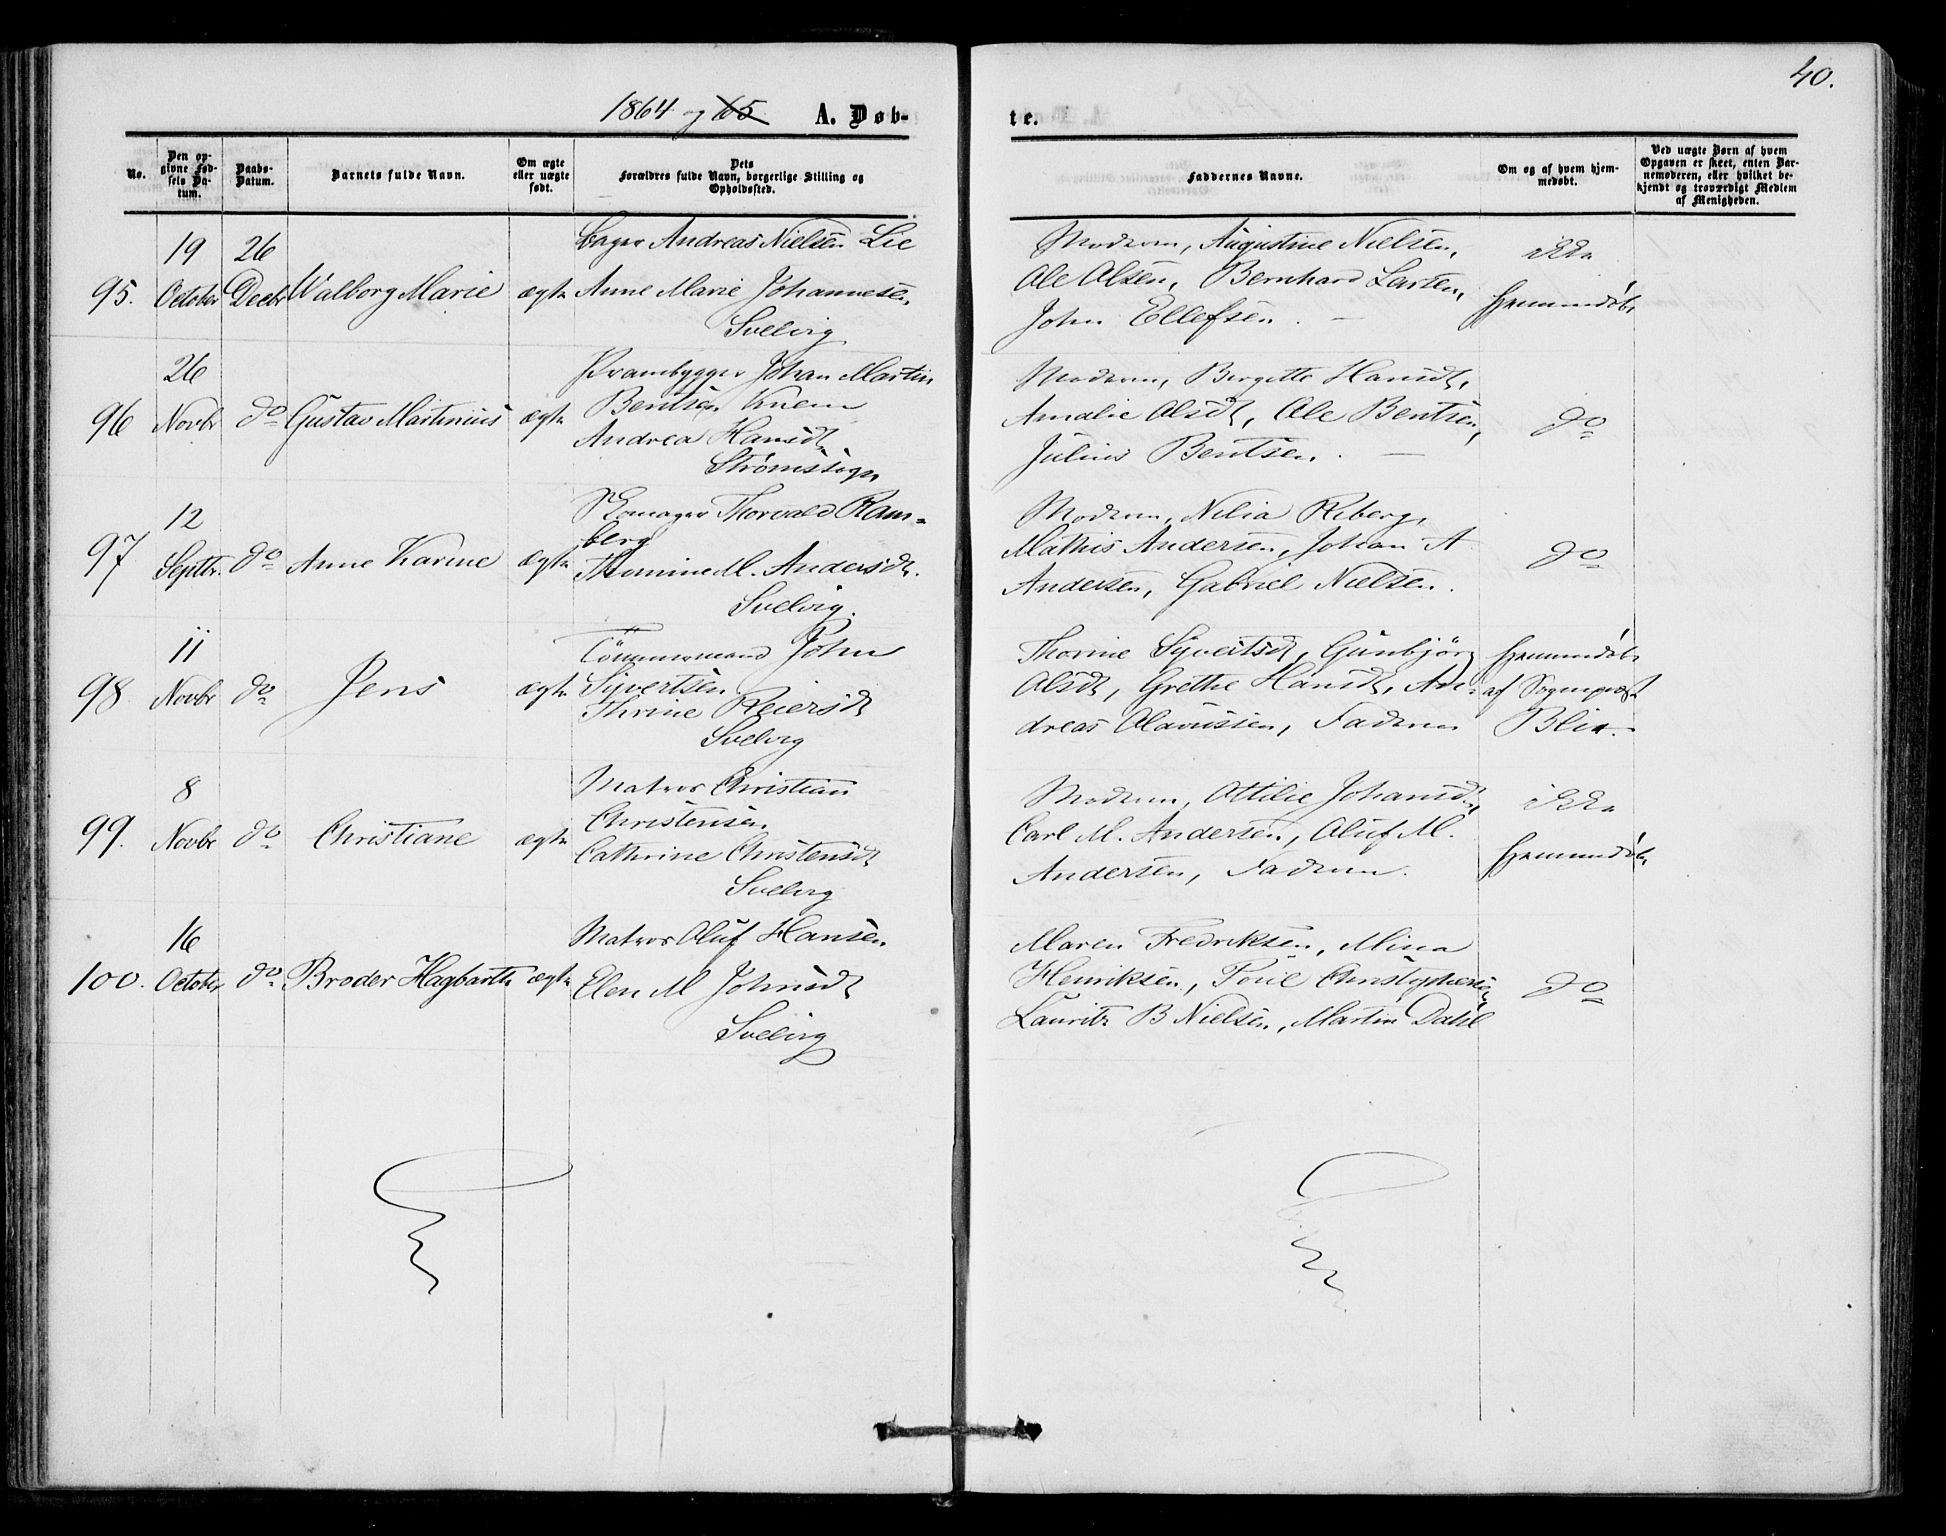 40.
1864 og 65 A. Døb-
te.
No.
Den op-
givne Fød-
sels Da-
tum.
Daabs-
Datum.
Barnets fulde Navn.
Om ægte
eller uægte
født.
Dets
Forældres fulde Navn, borgerlige Stilling og
Opholdssted.
Faddernes Navne.
Om og af hvem hjem-
medøbt.
Ved uægte Børn af hvem
Opgaven er skeet, enten Bar-
nemoderen, eller hvilket be-
kjendt og troværdigt Medlem
af Menigheden.
95.
19
October
26
Decbr
Walborg Marie
ægte
Andreas Nielsen Lie
Anne Marie Johannesen
Svelvig
Moderen, Augustine Nielsen,
Ole Olsen, Bernhard Larsen,
John Ellefsen.
ikke
hjemmedøbt
96
26
Novbr
do
Gustav Martinius
ægte
Prambygger Johan Martin
Bentsen
Andrea Hansdt
Strømssogn
Moderen, Birgitte Hansdt,
Amalie Olsdt, Ole Bentsen,
Julius Bentsen.
do
97
12
Septbr.
do
Anne Karine
ægte
Skomager Thorvald Ram-
berg
Thomine M. Andersdt.
Svelvig.
Moderen, Nilia Riberg,
Mathis Andersen, Johan A
Andersen, Gabriel Nielsen.
do
98
11
Novbr
do
Jens
ægte
Tømmermand John
Sivertsen
Thrine Reiersdt
Svelvig
Thorine Syvertsdt, Gunbjør
Olsdt, Grethe Hansdt, An-
dreas Olavussen, Faderen
hjemmedøbt
af Sogneprest
Blix.
99.
8
Novbr
do
Christiane
ægte
Matros Christian
Christensen
Cathrine Christensdt
Svelvig
Moderen, Ottilie Johansdt,
Carl M. Andersen, Oluf M.
Andersen, Faderen.
ikke
hjemmedøbt
100.
16
October
do
Broder Hagbarth
ægte
Matros Oluf Hansen
Elen M Johnsdt
Svelvig
Maren Fredriksen, Mina
Henriksen, Poul Christophersen,
Lauritz B Nielsen, Martin Dahl
do